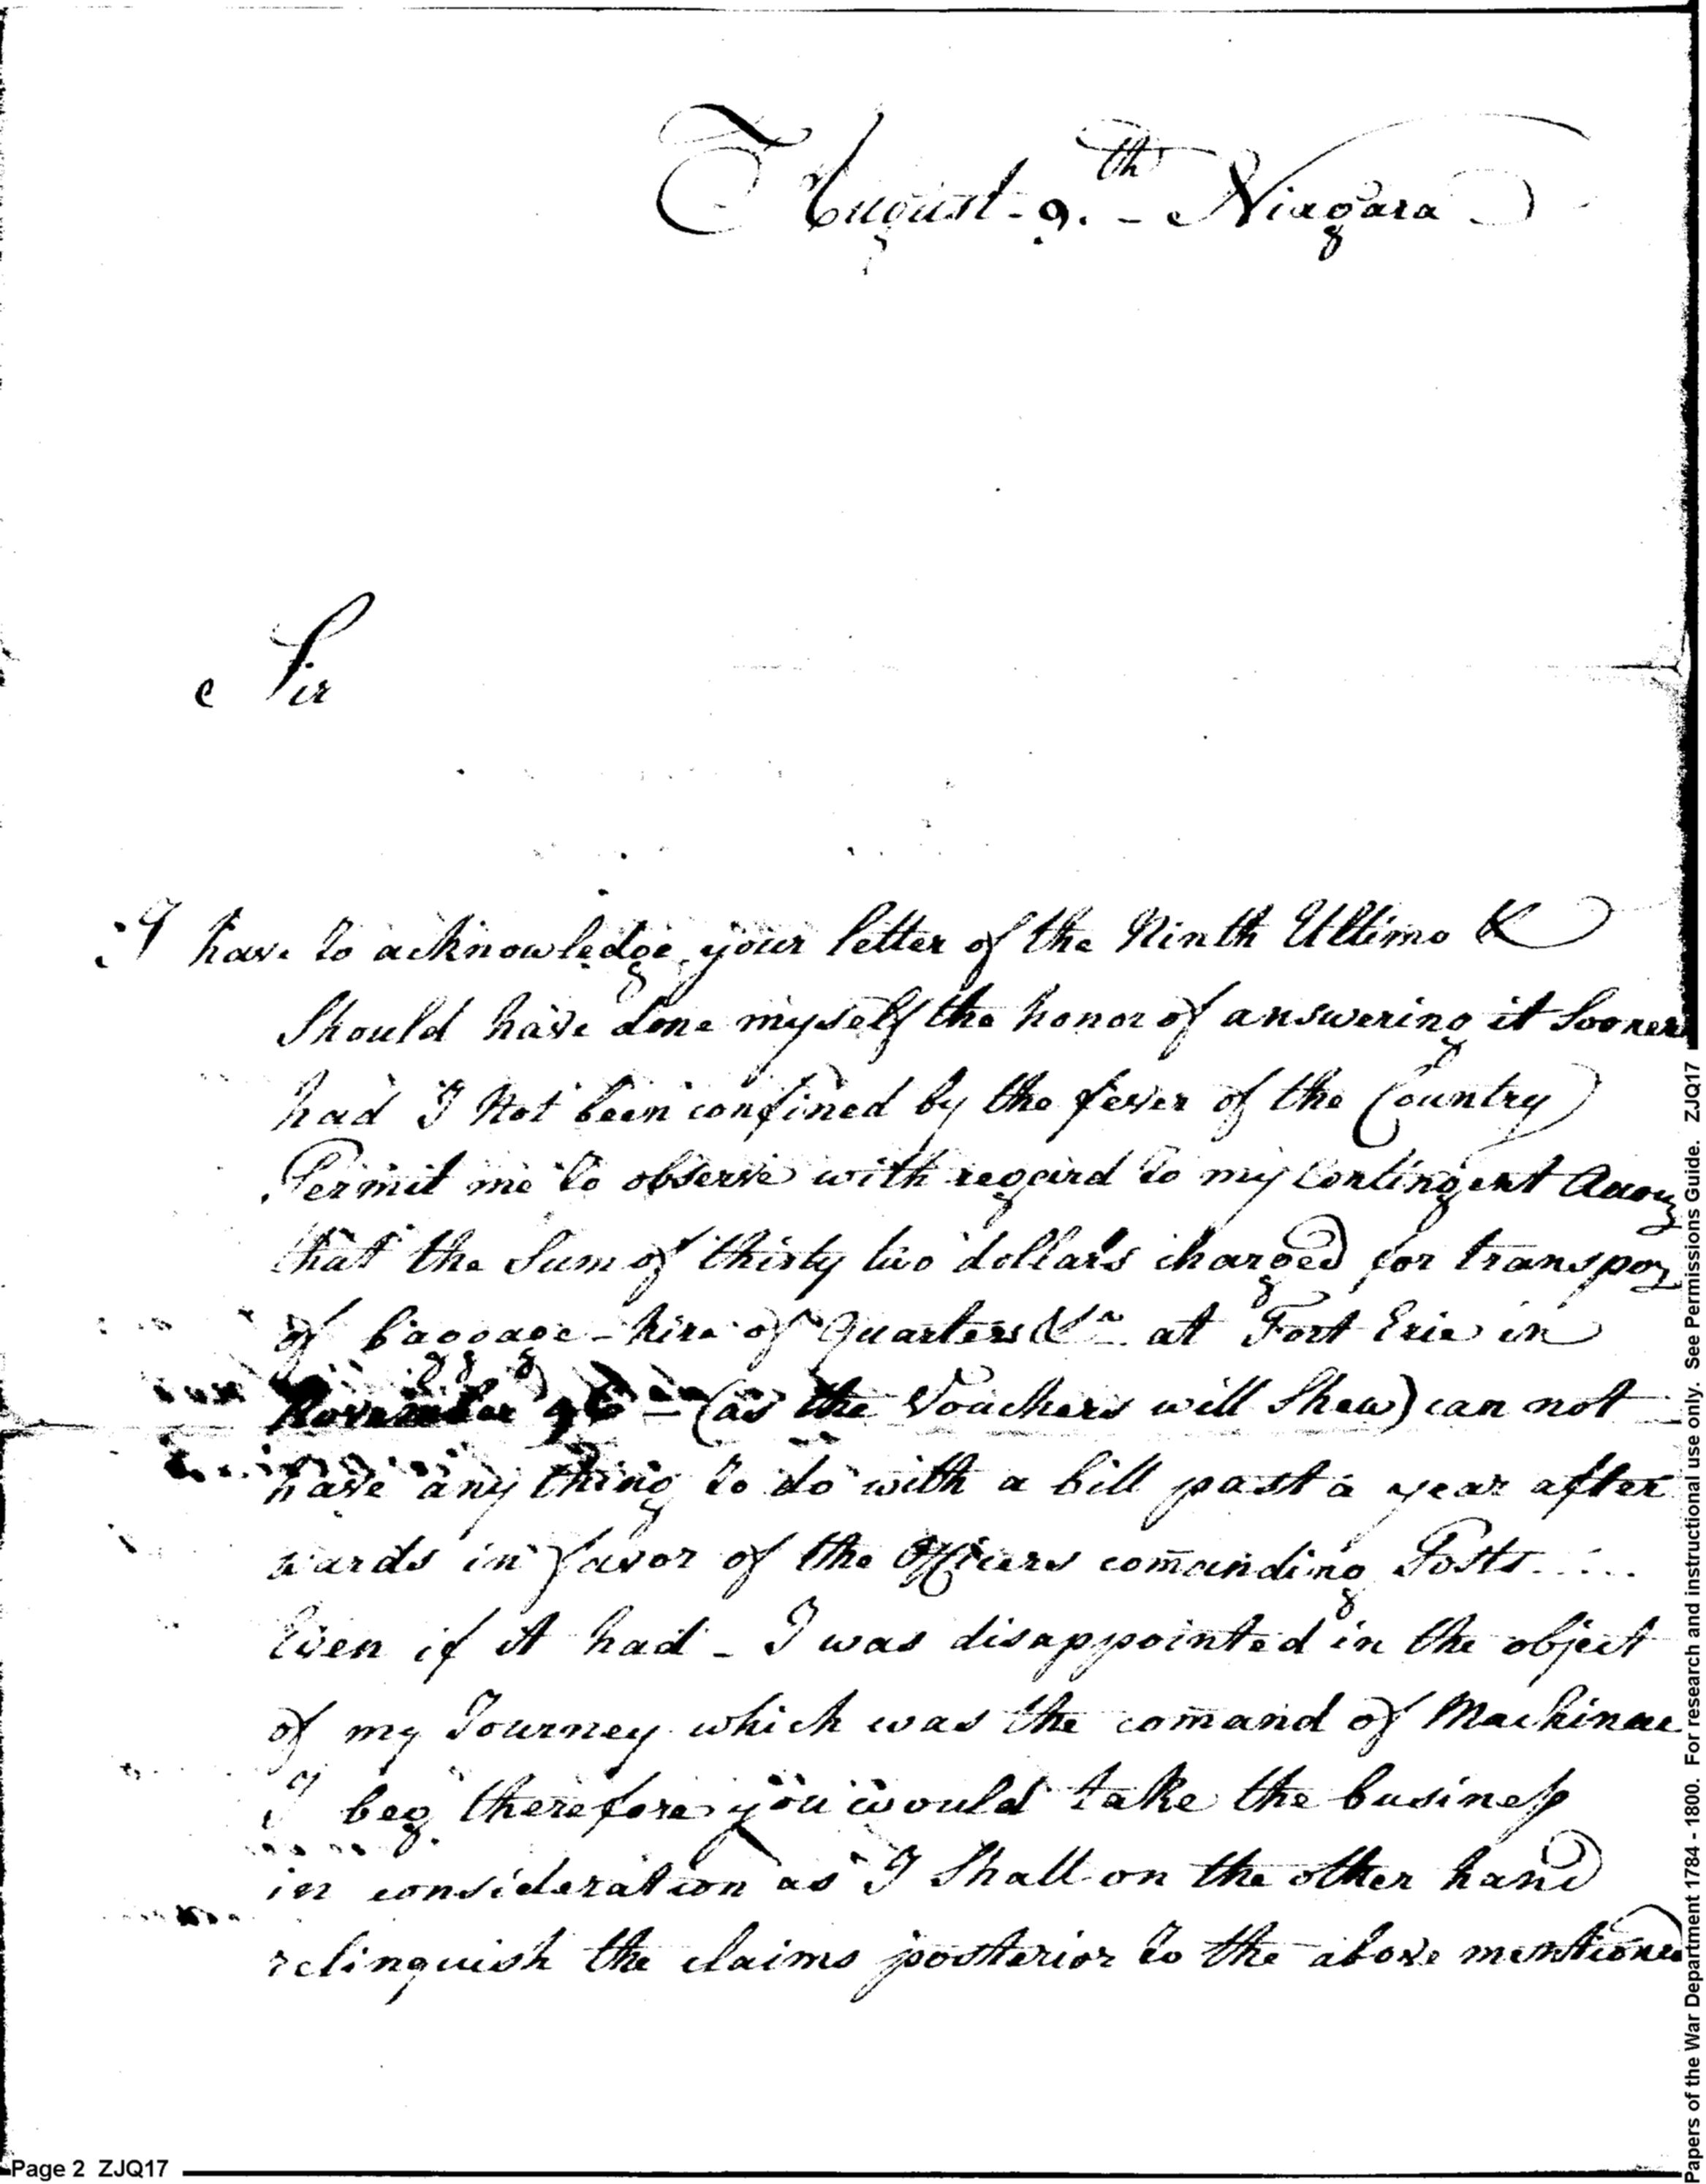 August - 9.th - Niagara
Sir
I have to acknowledge your letter of the Ninth Ultimo &
Should have done myself the honor of answering it Sooner
had I Not been confined by the fever of the Country
Permit me to observe with regard to my Contingent Accou
that the Sum of thirty two dollars charged for transpo
of baggage - hire of Quarters &c at Fort Erie in
November 96 - (as the Vouchers will Shew) can not
have any thing to do with a bill past a year after
wards in favor of the Officers comanding Posts.....
Even if it had - I was disappointed in the object
of my Journey which was the comand of Machinac
I beg therefore you would take the business
in consideration as I Shall on the other hand
relinquish the claims posterior to the above mentioned
Page 2 ZJQ17
Papers of the War Department 1784 - 1800. For research and instructional use only. See Permissions Guide. ZJQ17